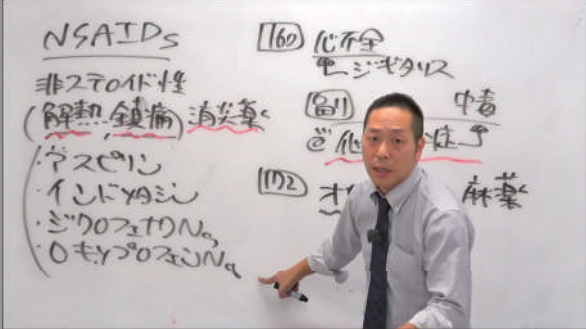 NSAIDs
非ステロイド性
(解熱、鎮痛)消炎薬
・アスピリン
・インドメタシン
・ジクロフェナクNa
・ロキソプロフェンNa
160 心不全
ジギタリス
副 中毒
172
麻薬